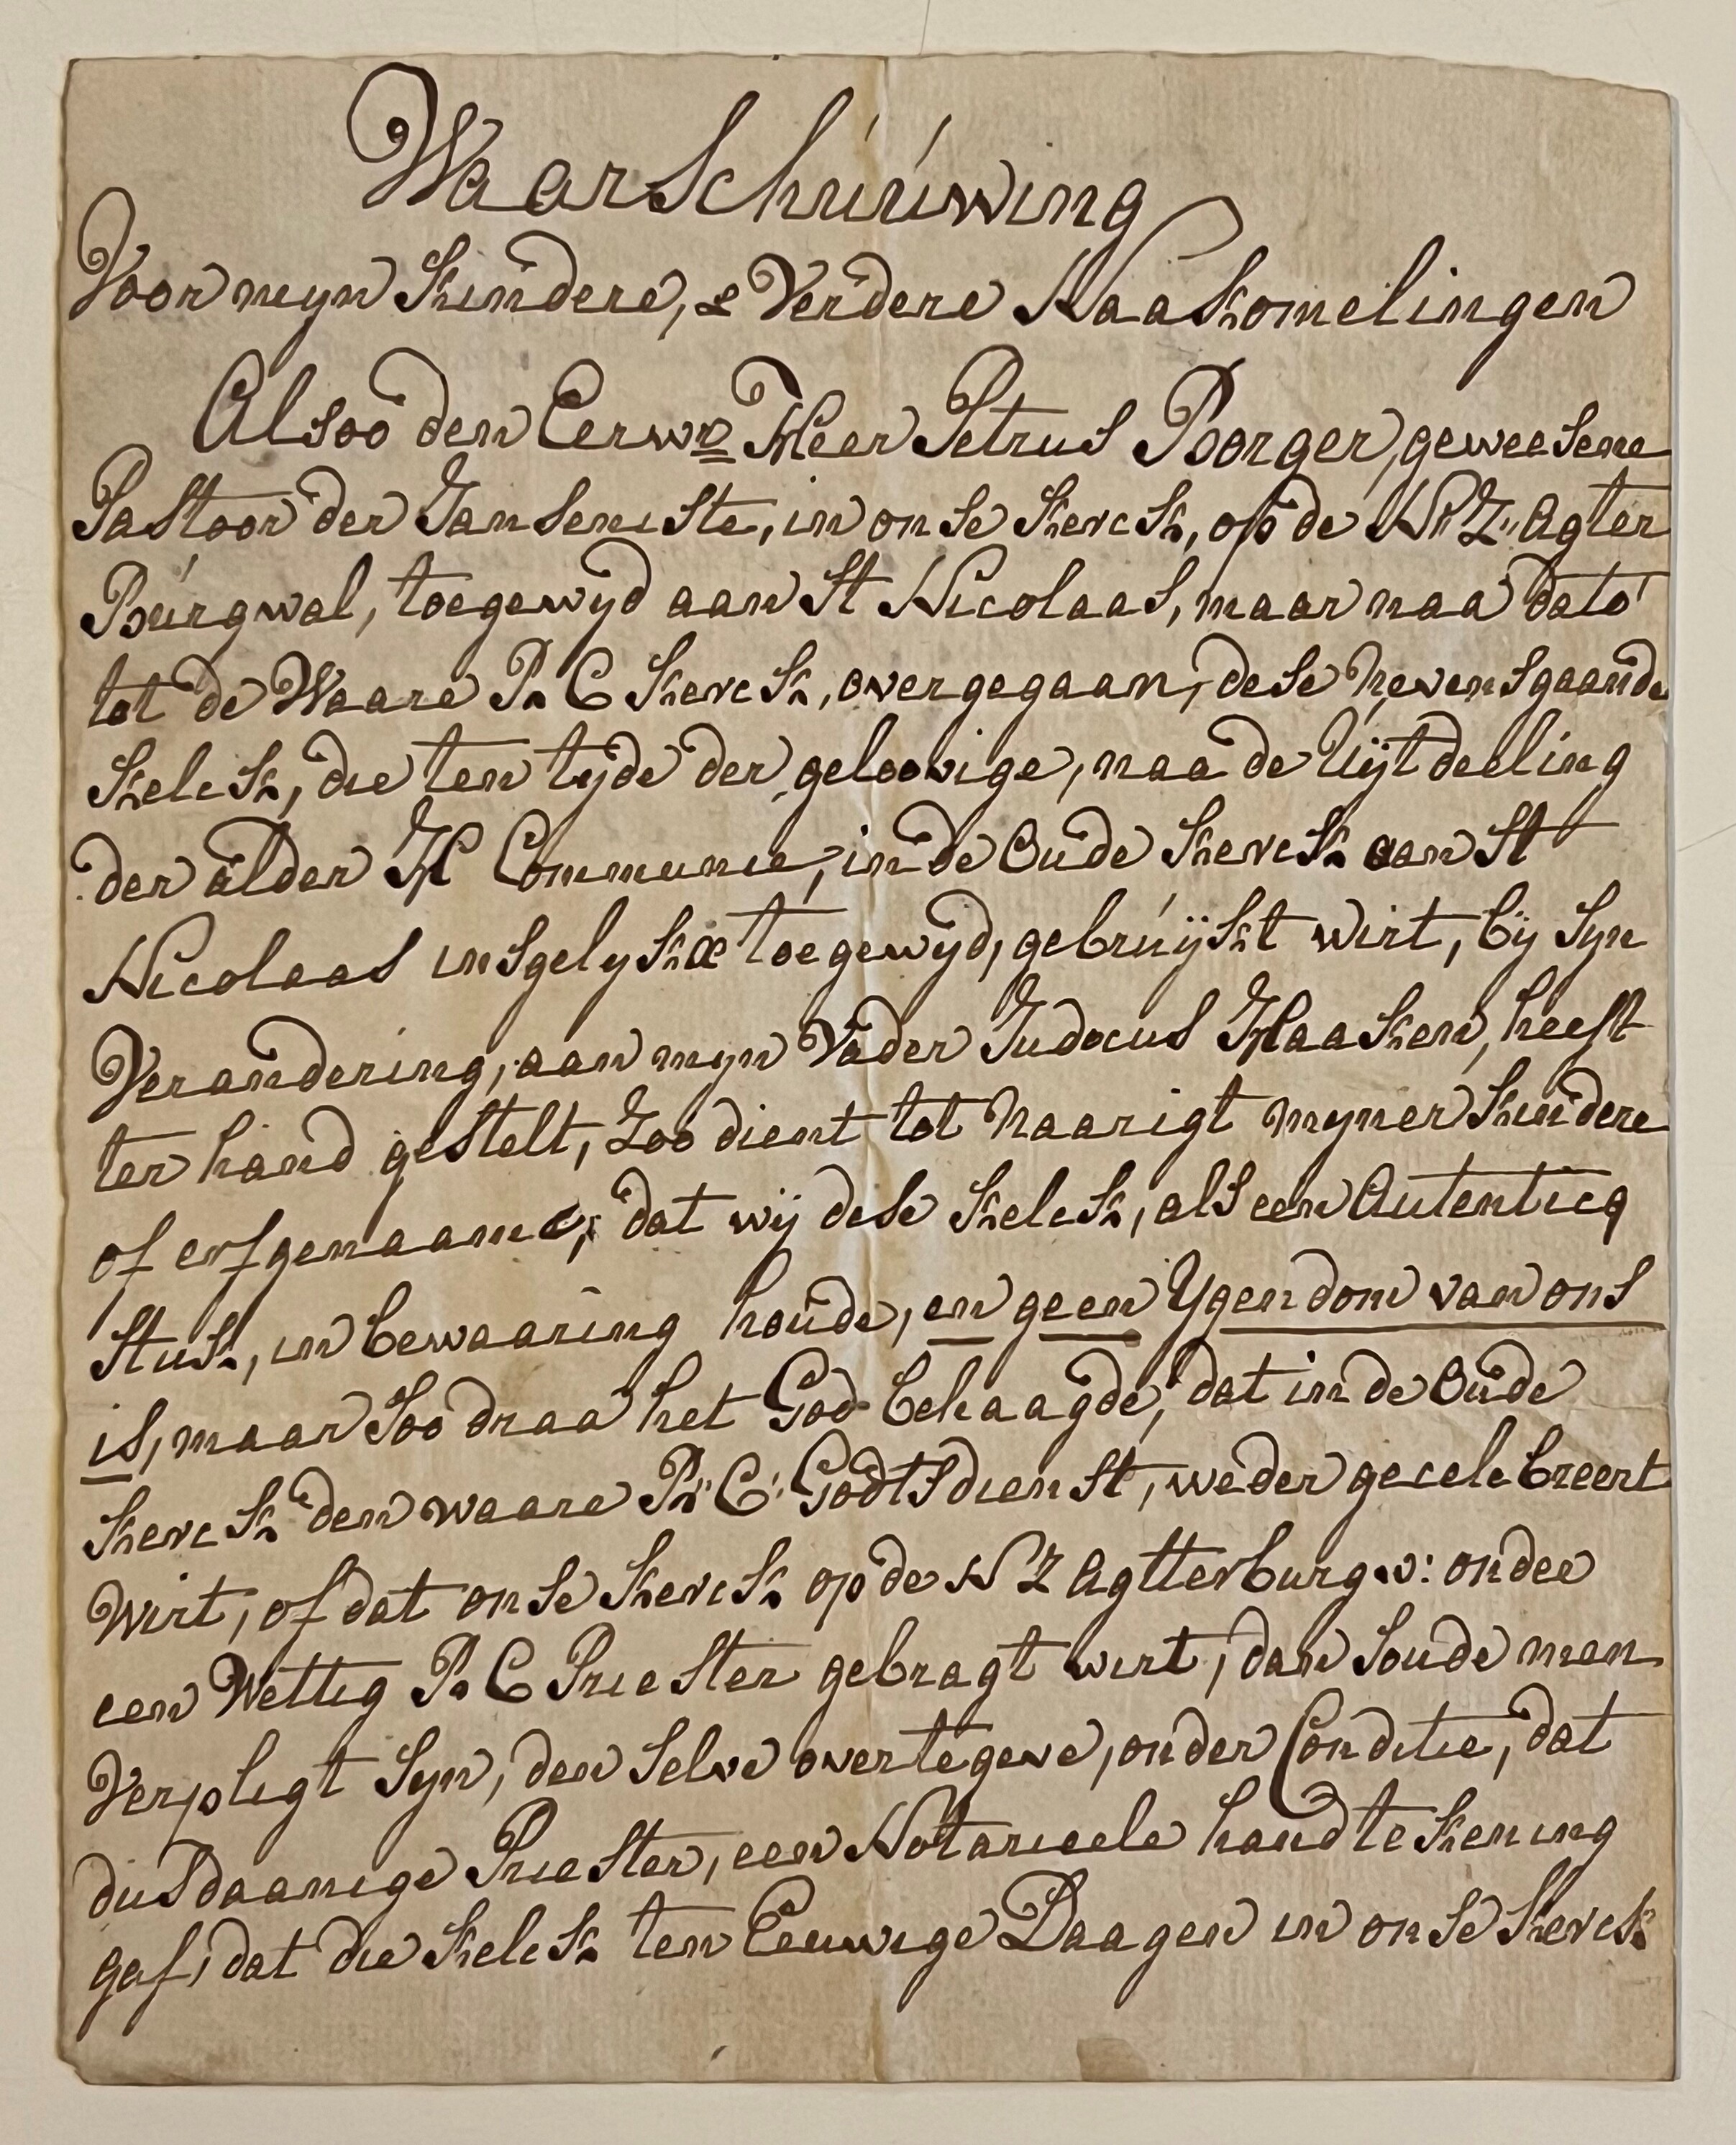 Waarschúúwing
Voor mijn Kindere, & Verdere Naakomelingen
Alsoo den Eerwe Heer Petrus Borger, geweesene
Pastoor der Janseniste, in onse Kerck, op de N: Z: Agter
Búrgwal, toegewijd aan St Nicolaas, maar naa dato
tot de Waare R C Kerck, overgegaan, dese nevensgaande
Kelck, die ten tijde der geloovige, naa de Uijtdeeling
der alder H Communie, in de Oude Kerck aan St
Nicolaas insgelyks toegewijd, gebruijkt wirt, bij Syn
Verandering, aan myn Vader Judocus Haaken, heeft
ter hand gestelt, Zoo dient tot naarigt myner Kindere
of erfgenaame, dat wij dese Kelck, als een Autenticq
Stuk, in bewaaring houde, en geen Ygendom van ons
is, maar Soo draa het God behaagde, dat in de Oude
Kerck den waare R: C: Godtsdienst, weder gecelebreert
Wirt, of dat onse Kerck op de N Z Agtterburgw: onder
een Wettig R C Priester gebragt wirt, dan Soude men
Verpligt Syn, den Selve over te geve, onder Conditie, dat
dusdaanige Priester, een Notarieele handtekening
gaf, dat die Kelck ten Eeuwige Daagen in onse Kerck